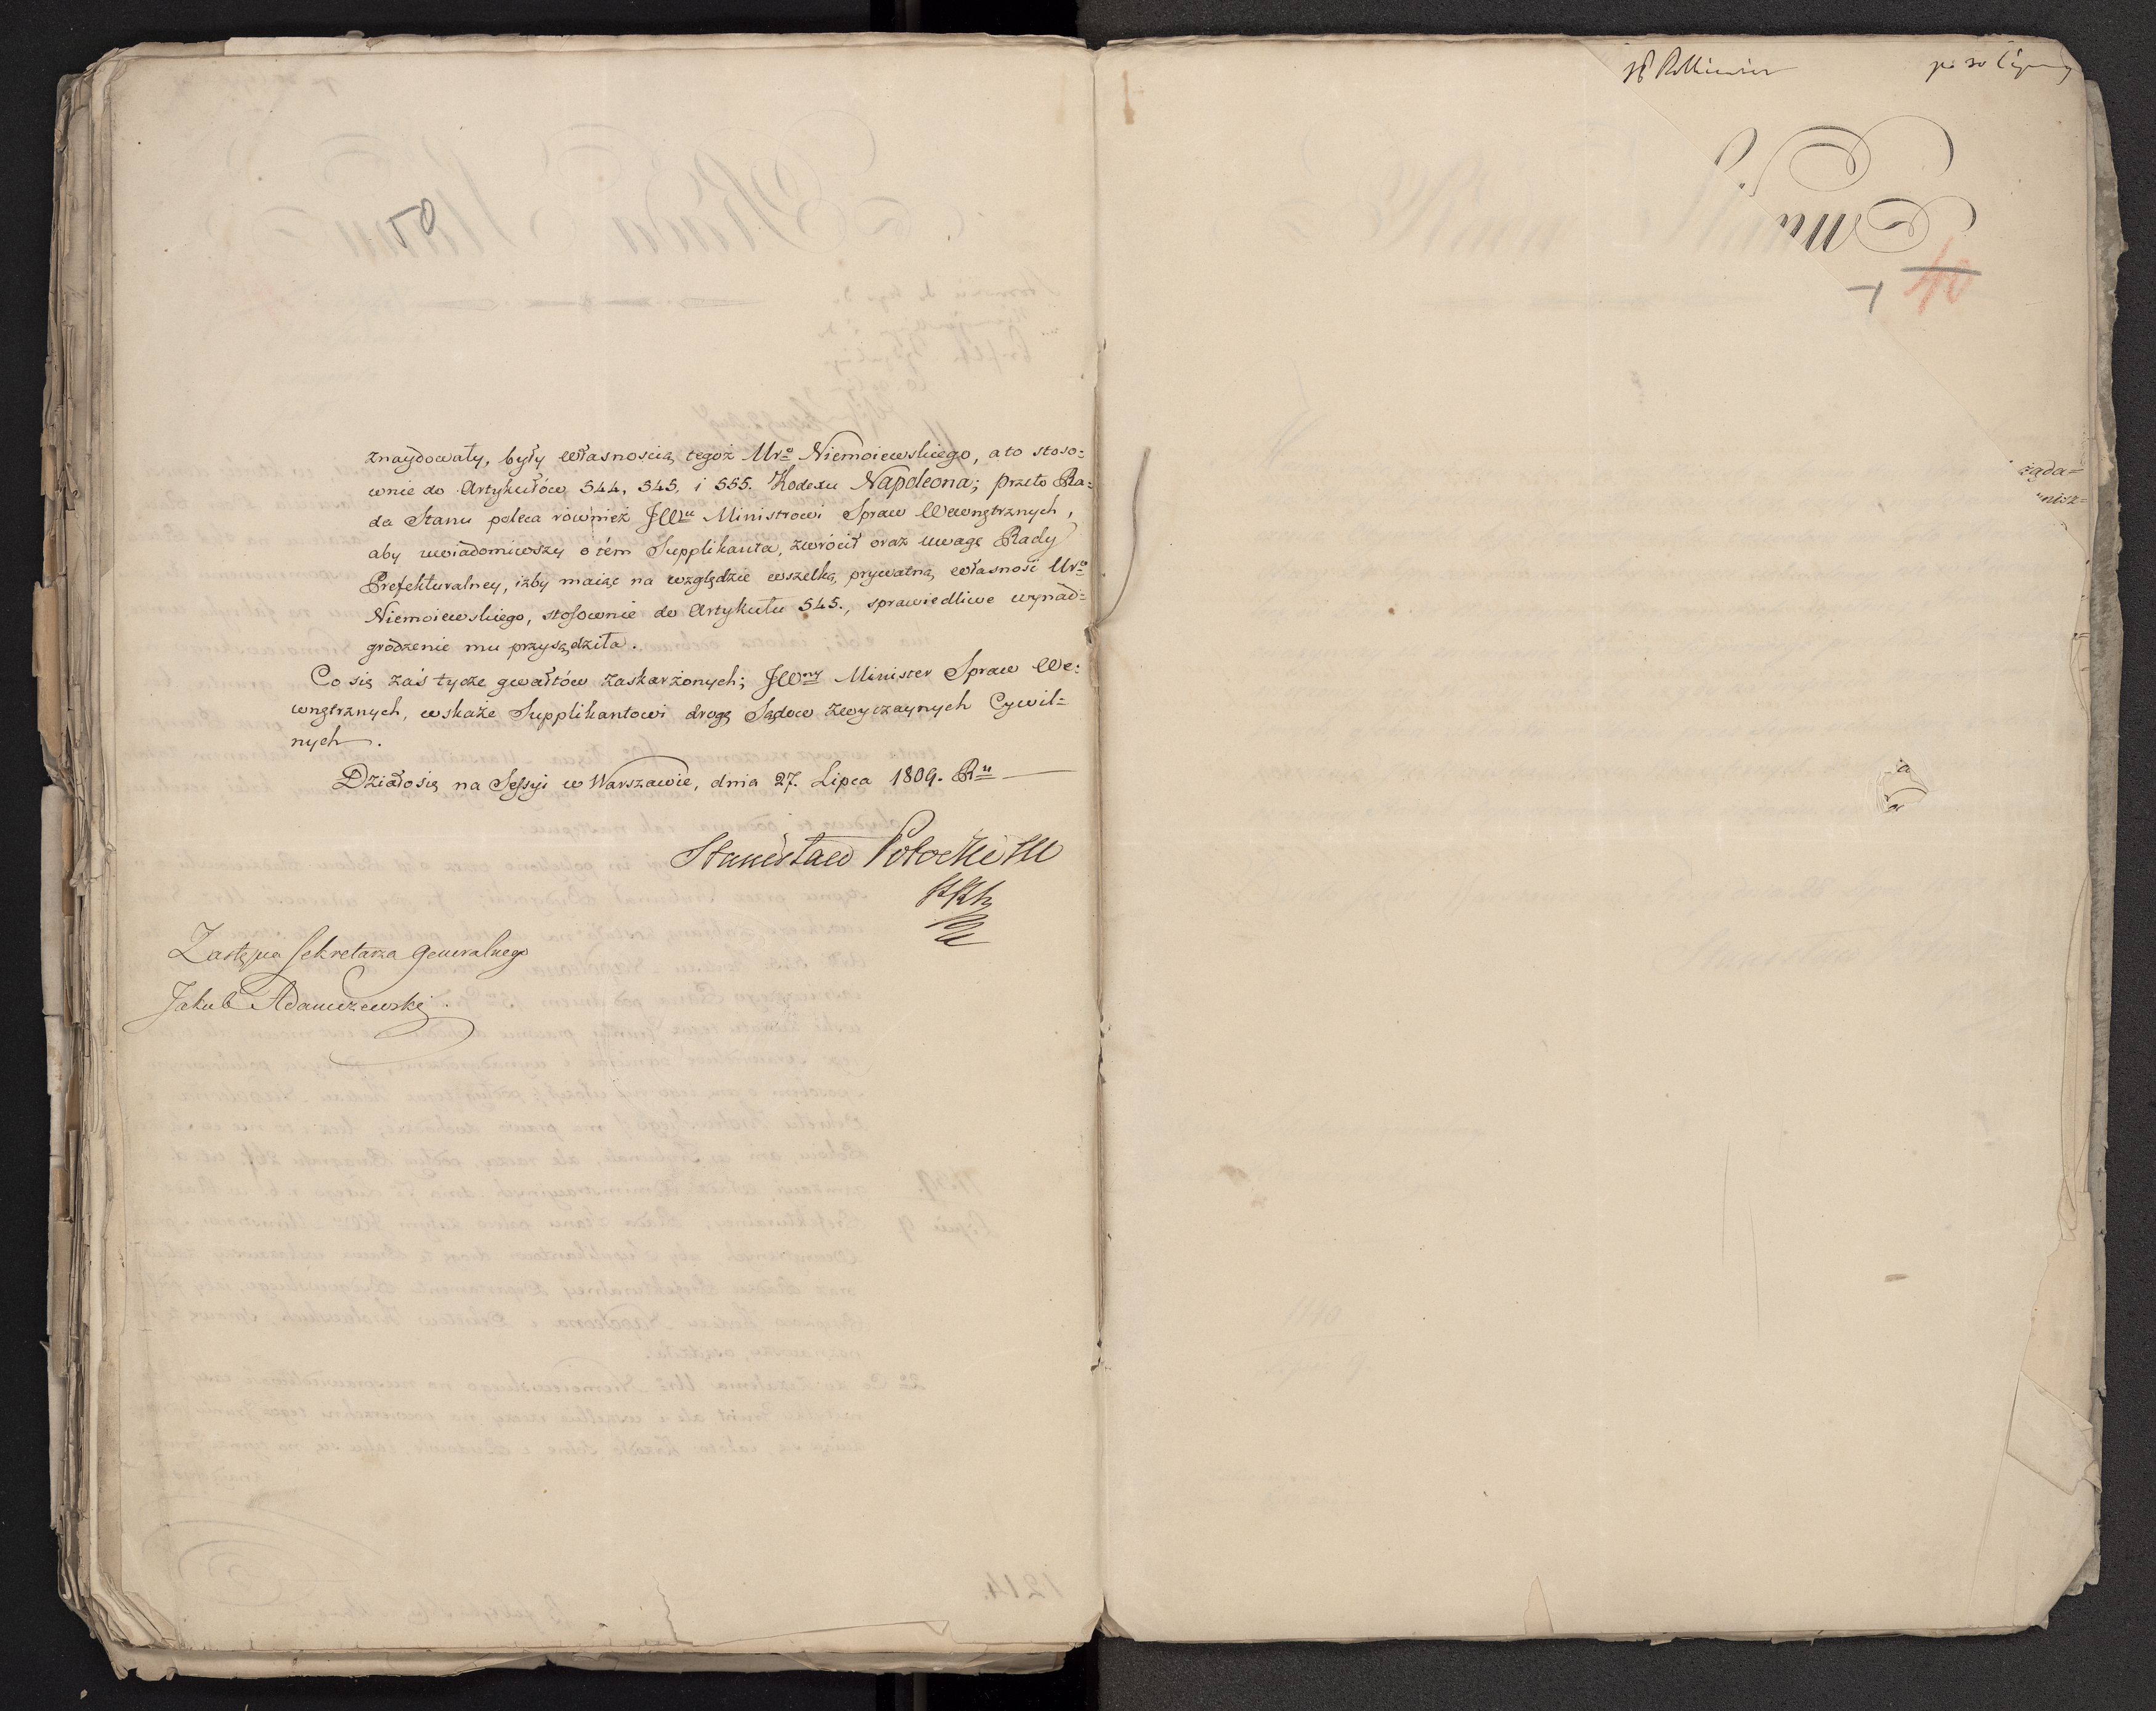 znaydowały, były własnością tegoż Ur° Niemoiewskiego, a to stoso=
wnie do Artykułów 544, 545, i 555. Kodexu Napoleona; przeto Ra=
da Stanu poleca również JWu Ministrowi Spraw Wewnętrznych,
aby uwiadomiwszy o tém Supplikanta, zwrócił oraz uwagę Rady
Prefekturalney, iżby maiąc na względzie wszelką prywatną własność Ur°
Niemoiewskiego, stosownie do Artykułu 545., sprawiedliwe wynad=
grodzenie mu przysądziła.
Co się zaś tycze gwałtów zaskarżonych; JWny Minister Spraw We=
wnętrznych, wskaże Supplikantowi drogę Sądow zwyczaynych Cywil=
nych.
Działo się na Sessyi w Warszawie, dnia 27. Lipca 1809. Ru
Stanisław Potocki
Zastępca Sekretarza Generalnego
Jakub Adamczewski
50
40
żąda=